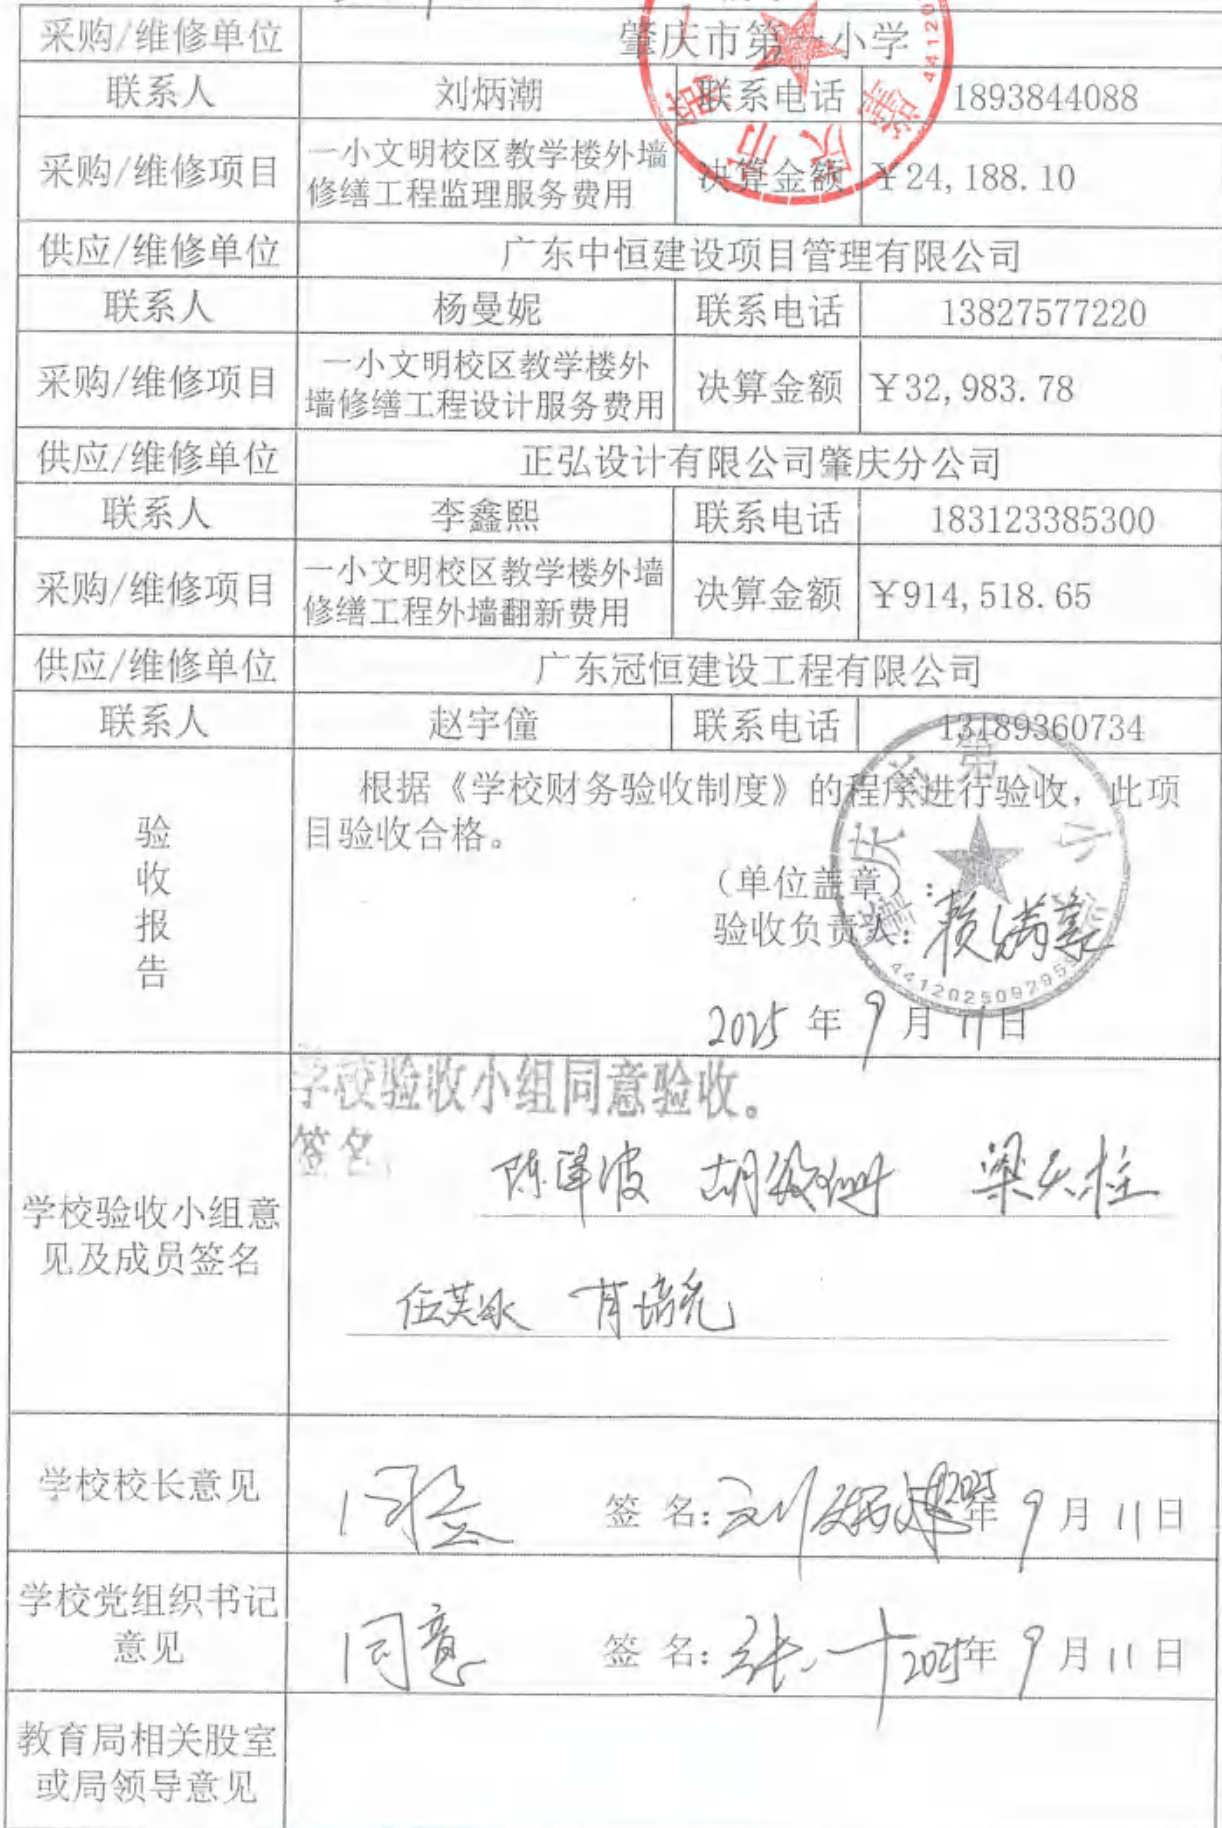 采购/维修单位 肇庆市第一小学
联系人 刘炳潮 联系电话 1893844088
采购/维修项目 一小文明校区教学楼外墙
修缮工程监理服务费用 决算金额 ￥24,188.10
供应/维修单位 广东中恒建设项目管理有限公司
联系人 杨曼妮 联系电话 13827577220
采购/维修项目 一小文明校区教学楼外
墙修缮工程设计服务费用 决算金额 ￥32,983.78
供应/维修单位 正弘设计有限公司肇庆分公司
联系人 李鑫熙 联系电话 183123385300
采购/维修项目 一小文明校区教学楼外墙
修缮工程外墙翻新费用 决算金额 ￥914,518.65
供应/维修单位 广东冠恒建设工程有限公司
联系人 赵宇僮 联系电话 13189360734
验
收
报
告
根据《学校财务验收制度》的程序进行验收，此项
目验收合格。
（单位盖章）：
验收负责人：
2025 年 9 月 11 日
学校验收小组意
见及成员签名
学校验收小组同意验收。
签名
学校校长意见 同意 签 名: 2025年 9 月 11 日
学校党组织书记
意见 同意 签 名: 张一 2025年 9 月 11 日
教育局相关股室
或局领导意见